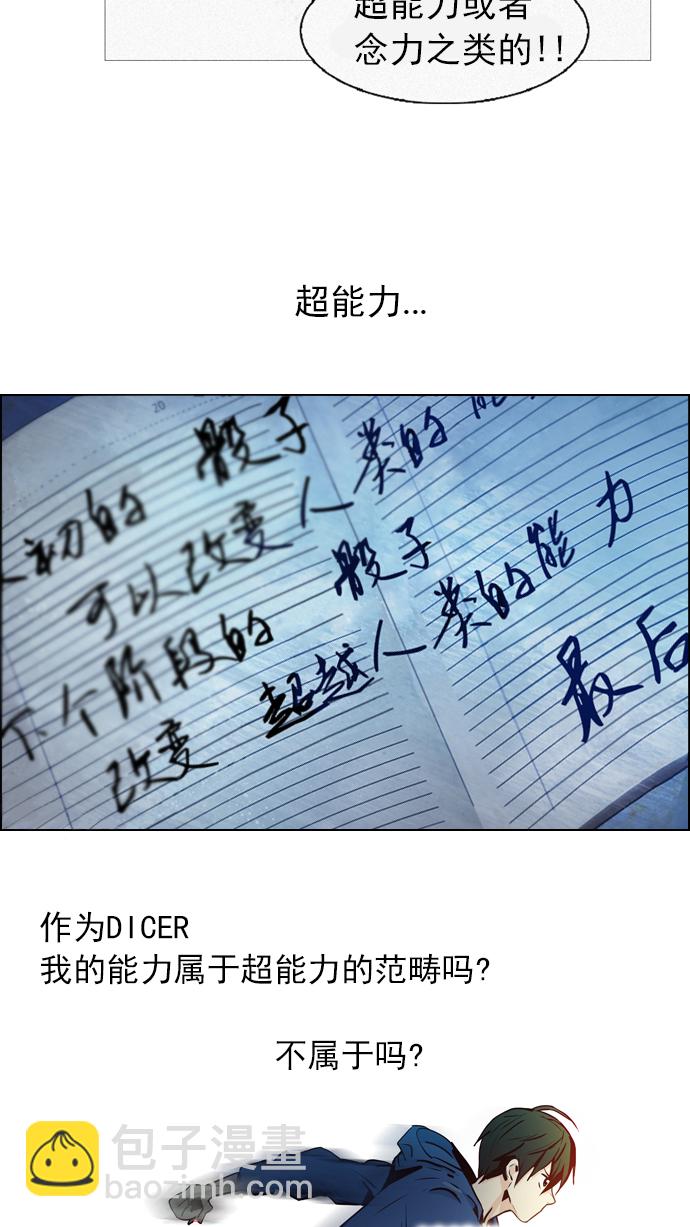 超能力或者
念力之类的!!
超能力...
20
初的 骰子
可以改变人类的能
下个阶段的 骰子
改变 超越人类的能力
最后
作为DICER
我的能力属于超能力的范畴吗?
不属于吗?
包子漫畫
baozimh.com